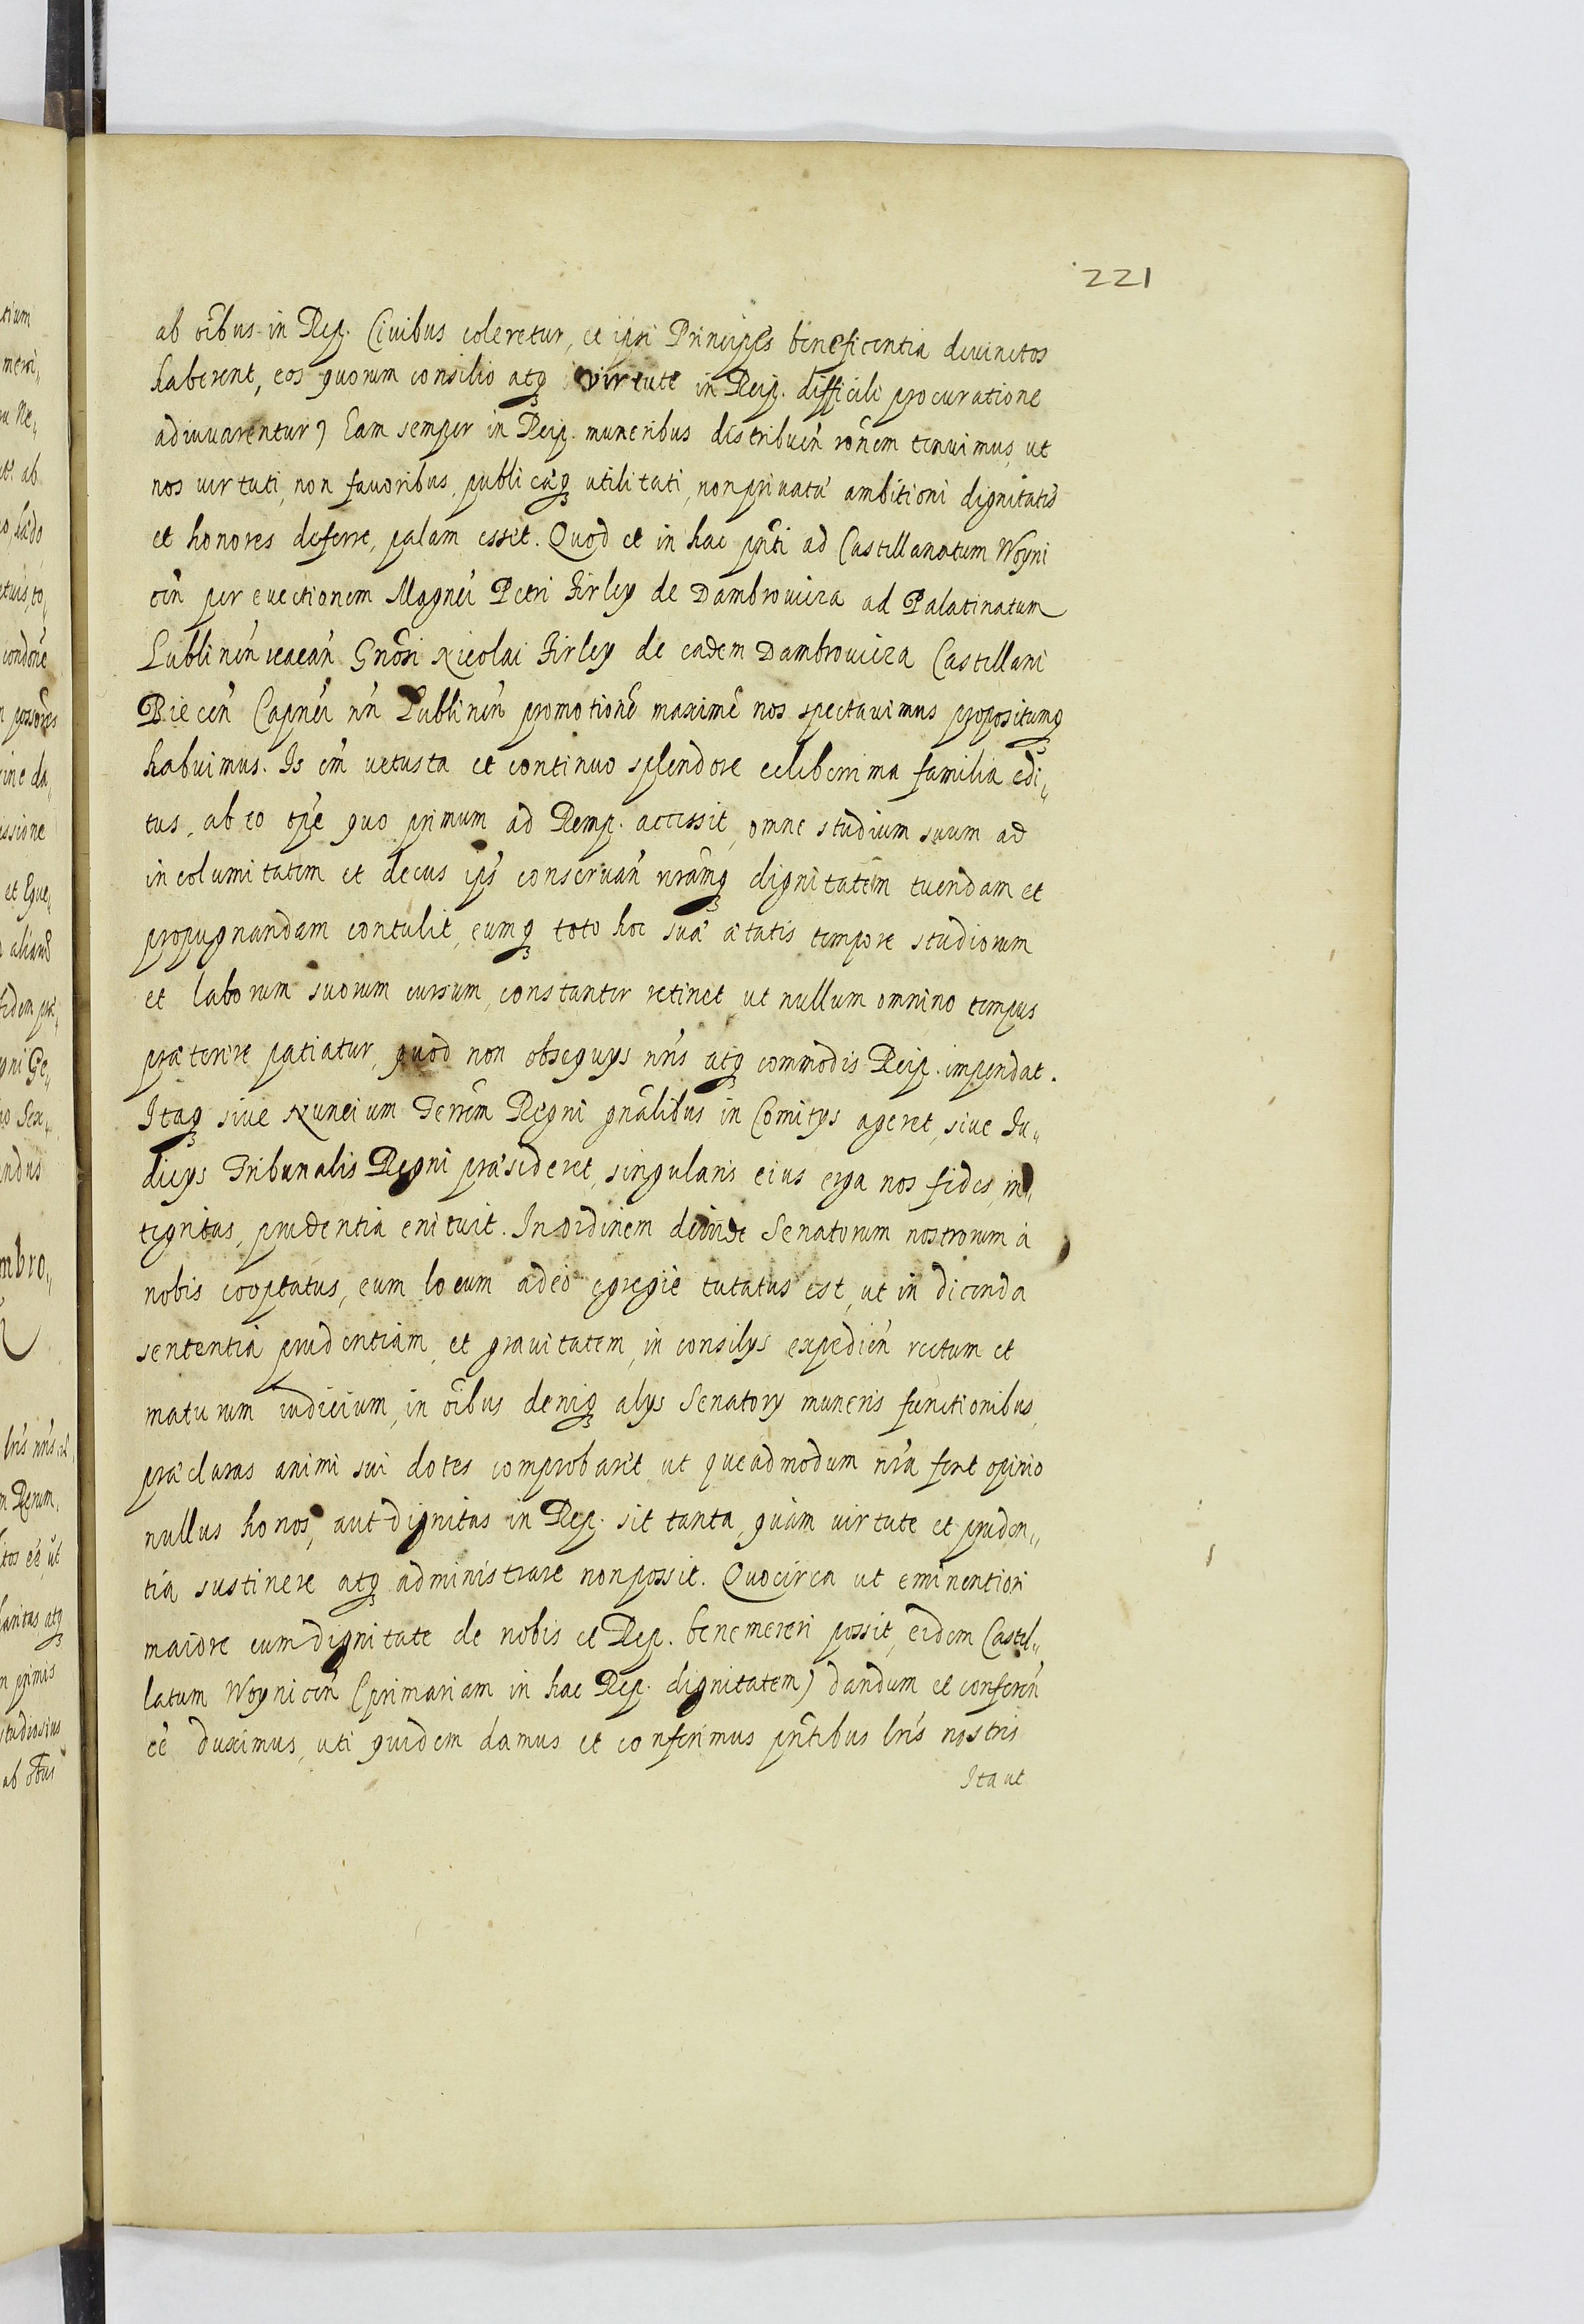 221
ab oĩbus in Rep. Ciuibus coleretur, et ipsi Principes beneficentia deuinctos
haberent, eos quorum consilio atq virtute in Reip. difficili procuratione
adiuuarentur) Eam semper in Reip. muneribus distribueñ rõnem tenuimus, ut
nos uirtuti, non fauoribus, publicæq utilitati, non priuatæ ambitioni dignitates
et honores deferre, palam esset. Quod et in hac pñti ad Castellanatum Woyni
ceñ per euectionem Magnci Petri Firley de Dambrowicza ad Palatinatum
Lublineñ uacañ Gnosi Nicolai Firley de eadem Dambrowicza Castellani
Bieceñ Capnei nñ Lublineñ promotione maxime nos spectauimus propositumq
habuimus. Is em uetusta et continuo splendore celeberrima familia edi„
tus, ab eo tpe quo primum ad Remp. accessit, omne studium suum ad
incolumitatem et decus ips conseruañ nramq dignitatem tuendam et
propugnandam contulit, eumq toto hoc suæ ætatis tempore studiorum
et laborum suorum cursum, constanter retinet, ut nullum omnino tempus
præterire patiatur, quod non obsequys nris atq commodis Reip. impendat.
Itaq siue Nuncium Terrem Regni gnalibus in Comitys ageret, siue Iu„
dicys Tribunalis Regni præsideret, singularis eius erga nos fides, in„
tegritas, prudentia enituit. In ordinem deinde Senatorum nostrorum à
nobis cooptatus, eum locum adeò egregie tutatus est, ut in dicenda
sententia prudentiam, et grauitatem, in consilys expedieñ rectum et
maturum iudicium, in oĩbus deniq alys Senatory muneris functionibus,
præclaras animi sui dotes comprobarit ut queadmodum nra fert opinio
nullus honos, aut dignitas in Rep. sit tanta, quam uirtute et pruden„
tia sustinere atq administrare non possit. Quocirca ut eminentiori
maiore cum dignitate de nobis et Rep. benemereri possit, eidem Castel„
latum Woyniceñ (primariam in hac Rep. dignitatem) dandum et confereñ
eē duximus, uti quidem damus et conferimus pñtibus lris nostris
Ita ut